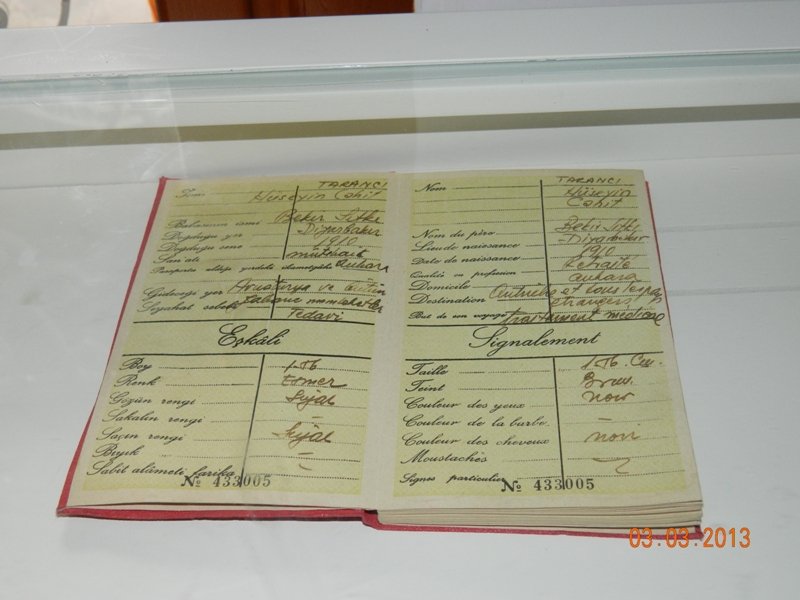 TARANCI
Hüseyin Cahit
Babasının ismi Bekir Sıtkı
Doğduğu yer Diyarbakır
Doğduğu sene 1910
San'atı mütekait
Pasaportu aldığı yerdeki ikametgâhı Ankara
Gideceği yer Avusturya ve bütün
Seyahat sebebi
Tedavi
Eşkâli
Boy 1.76
Renk Esmer
Gözün rengi Siyah
Sakalın rengi —
Saçın rengi Siyah
Bıyık —
Sabit alâmeti farika
№ 433005
TARANCI
Nom Hüseyin
Cahit
Nom du père Bekir Sıtkı
Lieu de naissance Diyarbakır
Date de naissance 1910
Qualité ou profession
Domicile Ankara
Destination Autriche et tous les pays
étrangers
But de son voyage traitement médical
Signalement
Taille 1.76 Cm.
Teint Brun
Couleur des yeux noir
Couleur de la barbe —
Couleur des cheveux noir
Moustaches
Signes particulier
№ 433005
03.03.2013